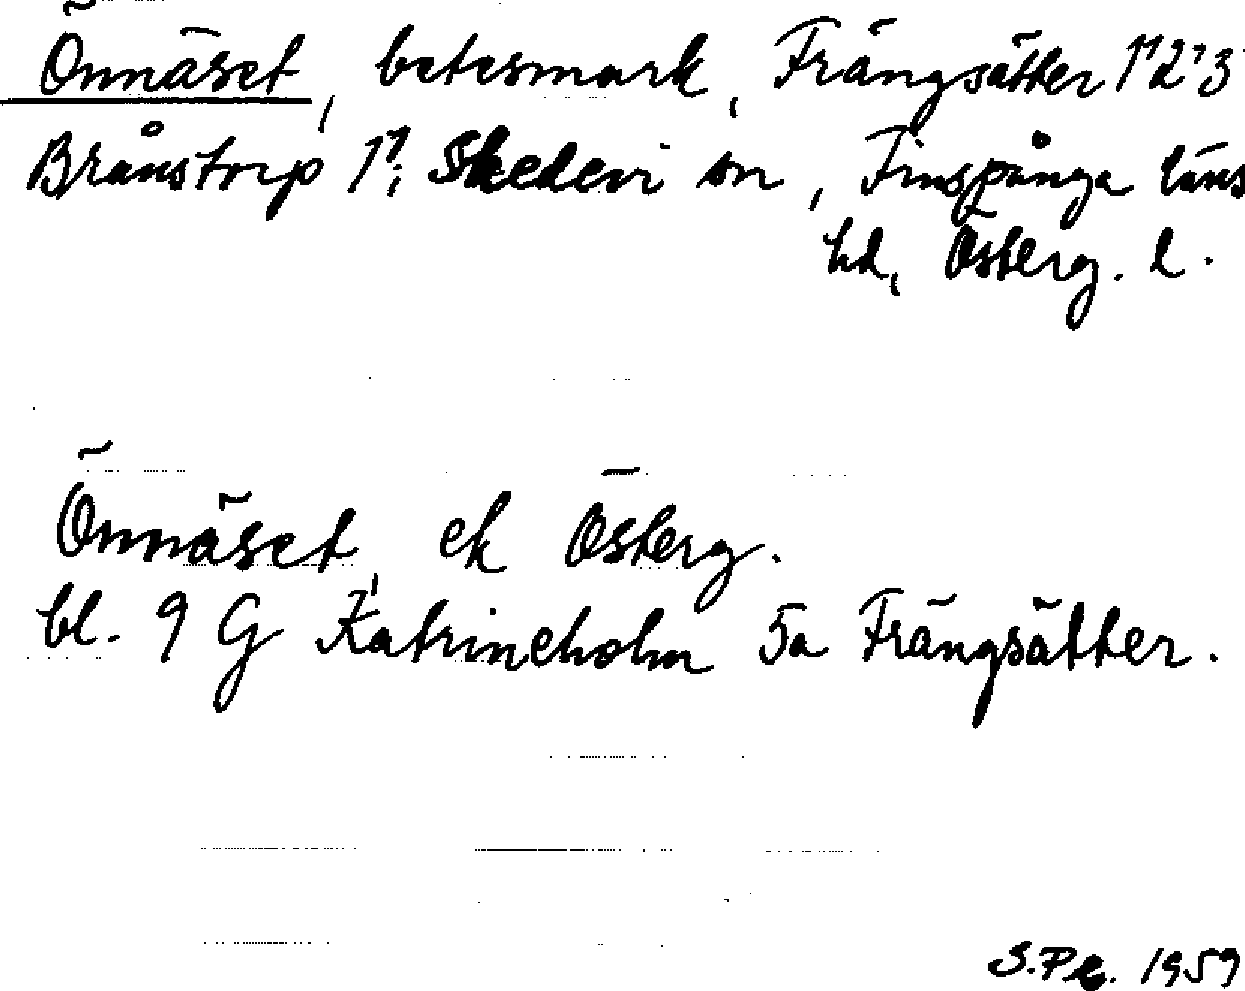 Önnäset, betesmark, Frängsätter 1¹ 2¹ 3
Brånstorp 1¹; Skedevi sn, Finspånga läns
hd, Österg. l.
Önnäset, ek Österg.
bl. 9 G Katrineholm 5a Frängsätter.
1959